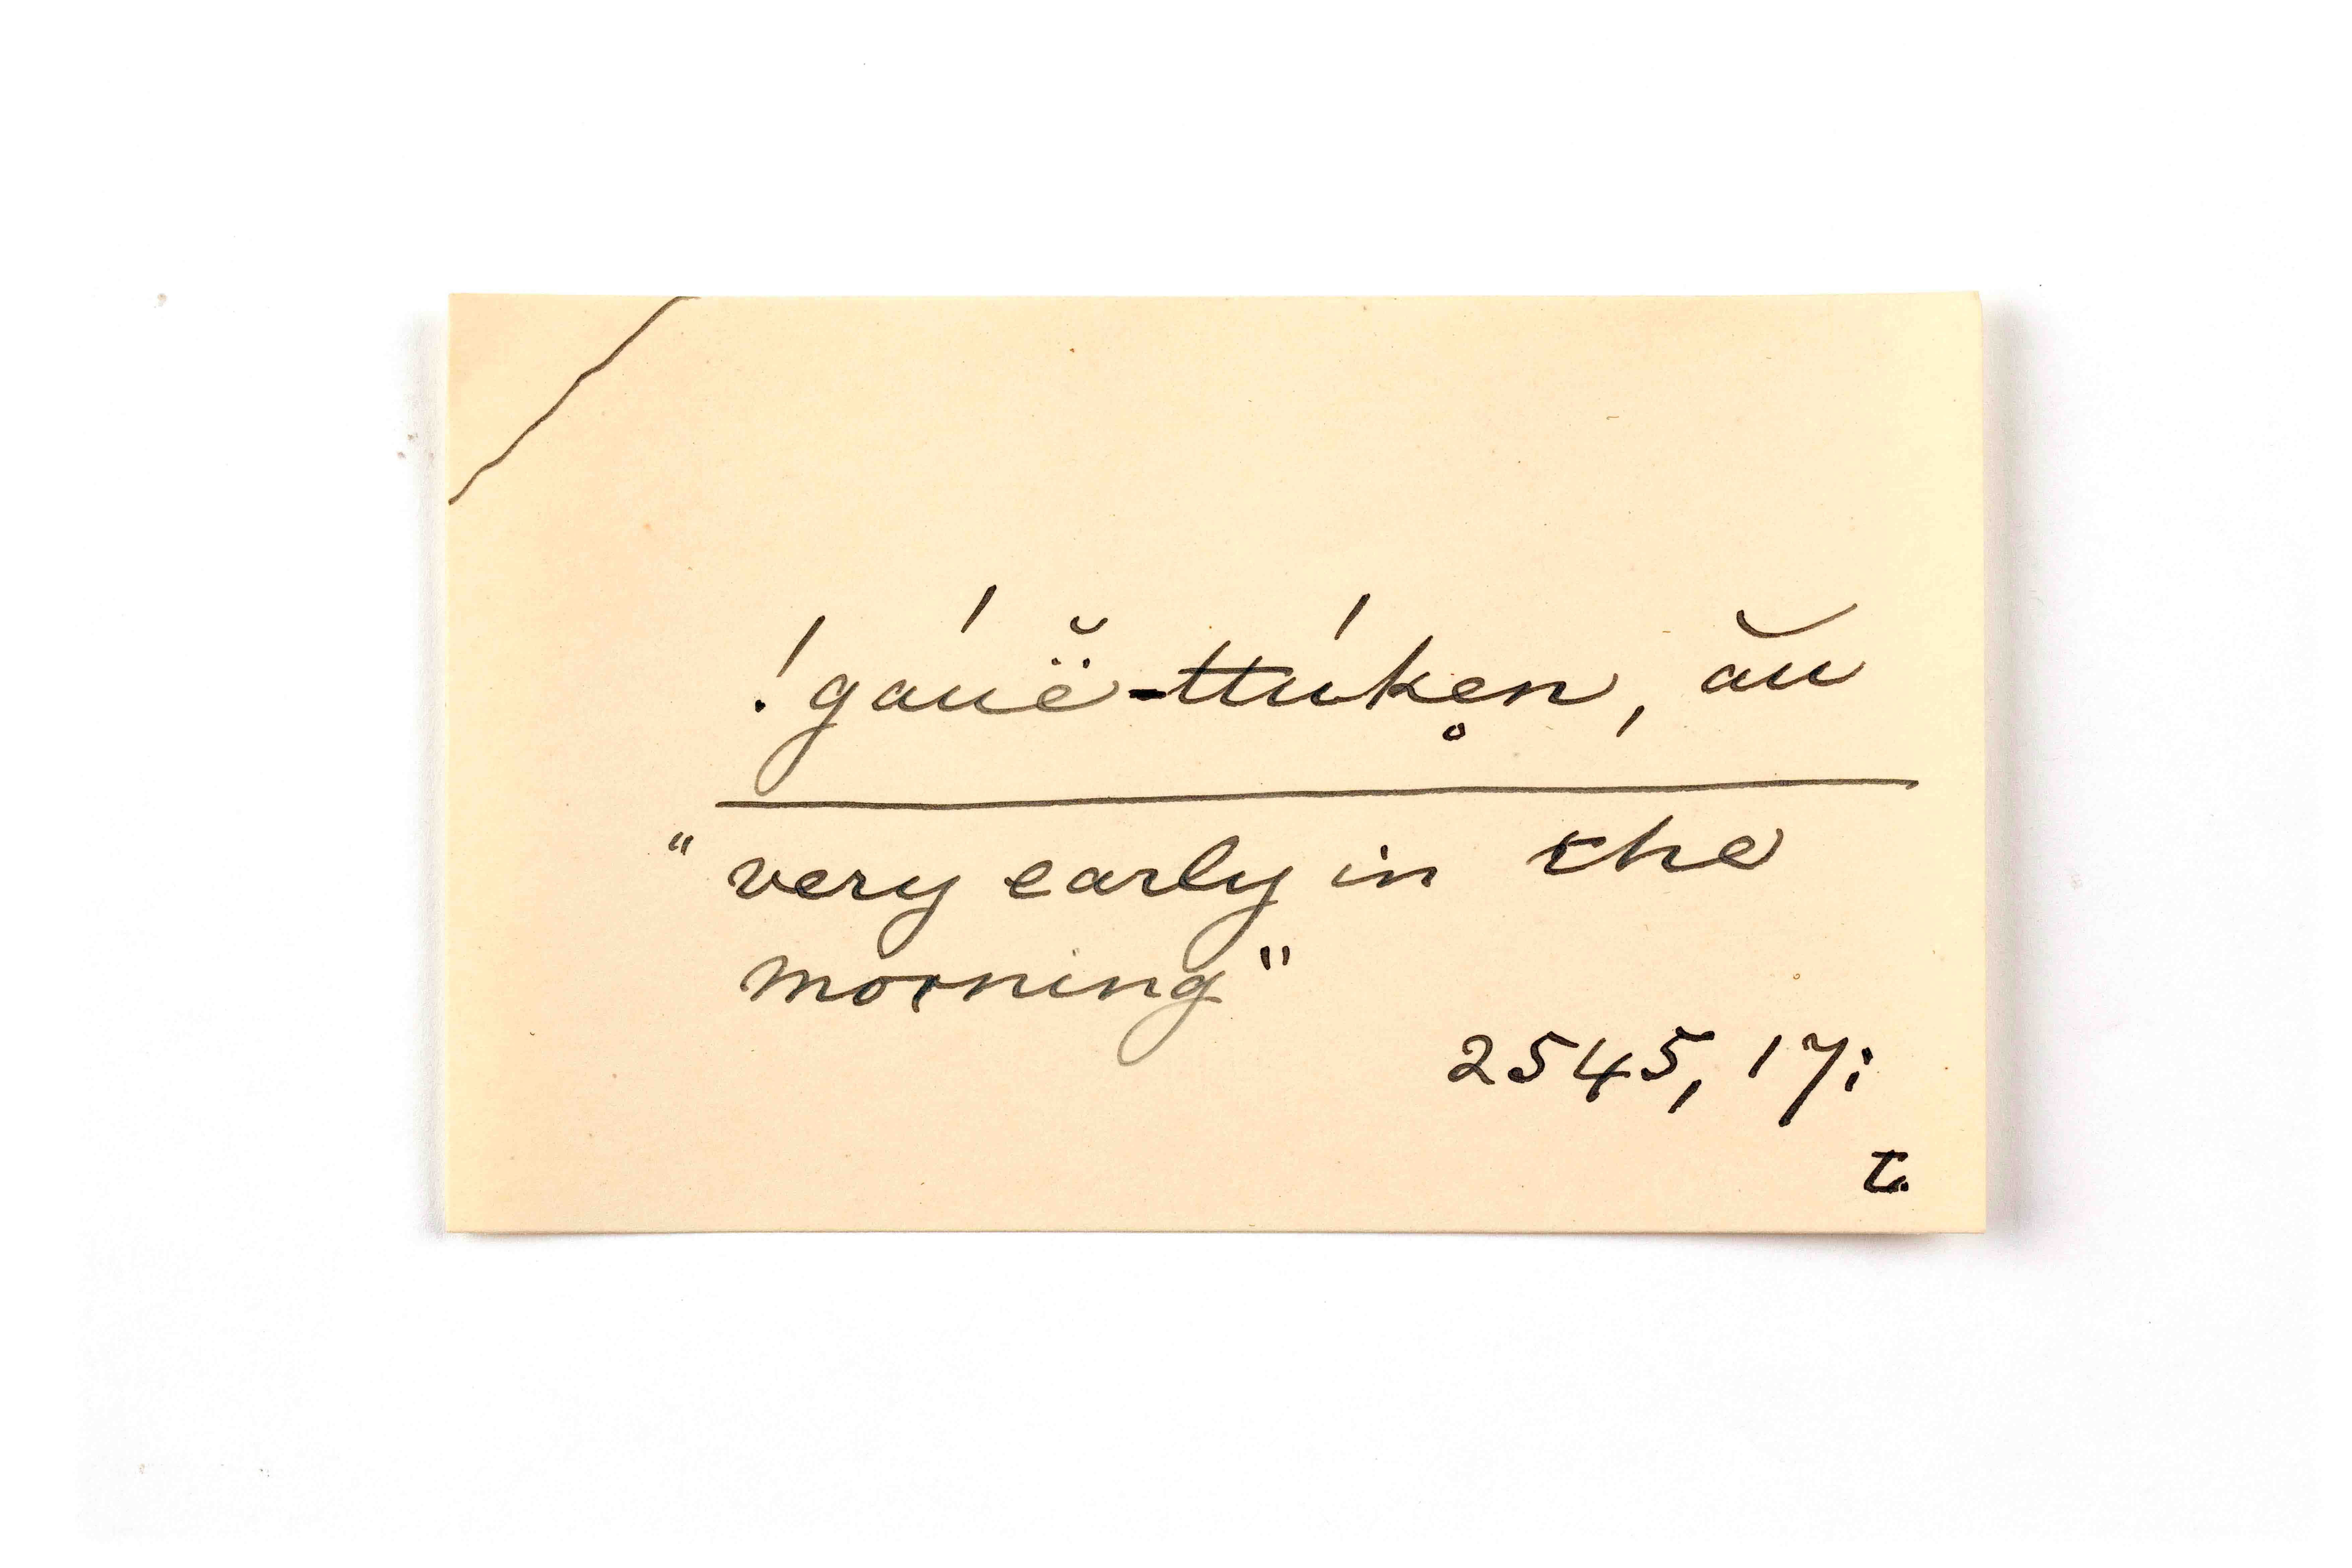 !gáuë̆-ttúke̥n, ău
"very early in the
morning"
2545, 17:
t.